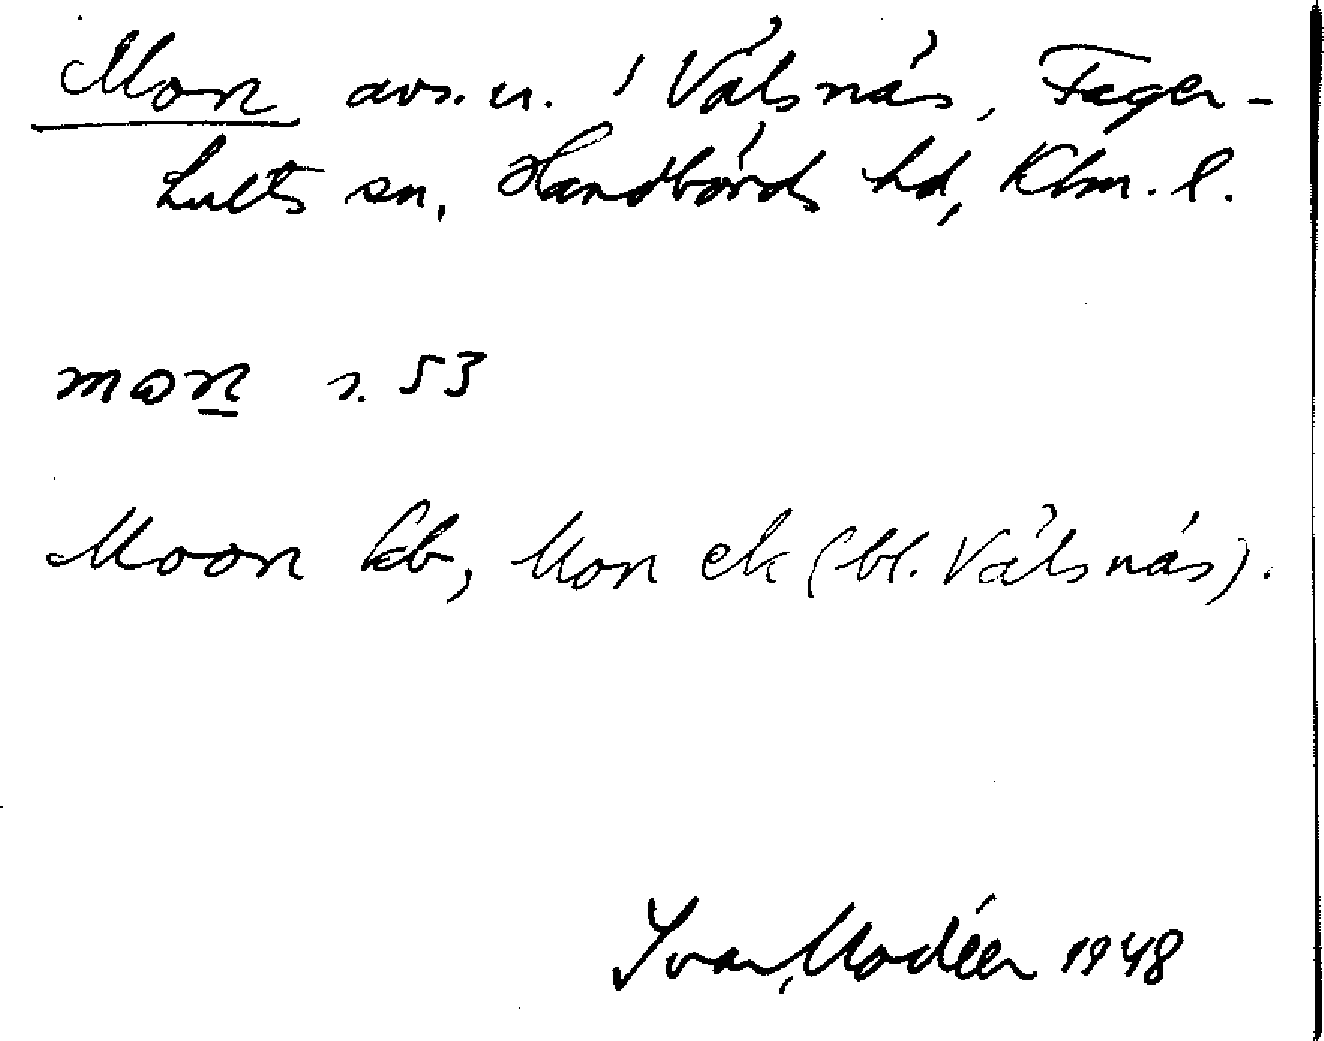 Mon avs.n. i Välsnäs, Fager-
hults sn, Handbörds hd, Klm. l.
mon s. 53
Moon kb, Mon ek (bl. Välsnäs).
Ivar Modéer 1948